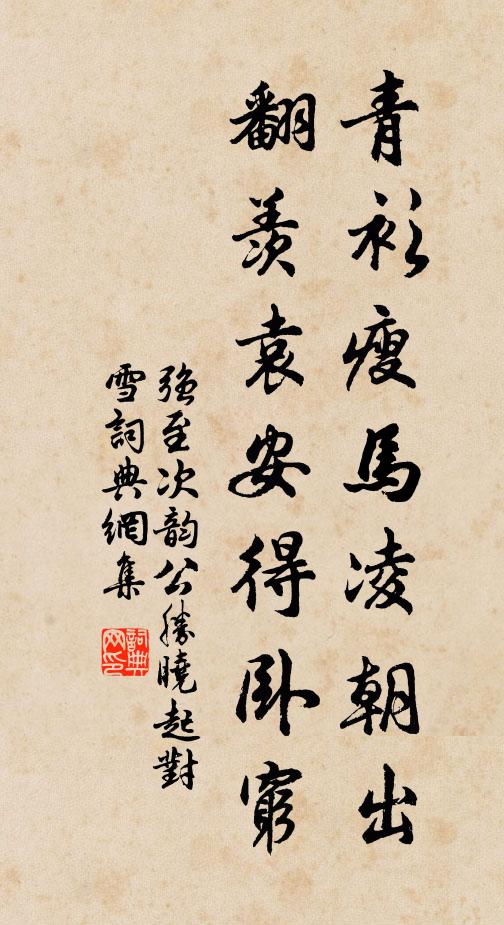 青衫瘦馬凌朝出
翻羨袁安得卧窮
强至次韵公勝曉起對
雪詞典網集
詞典網印